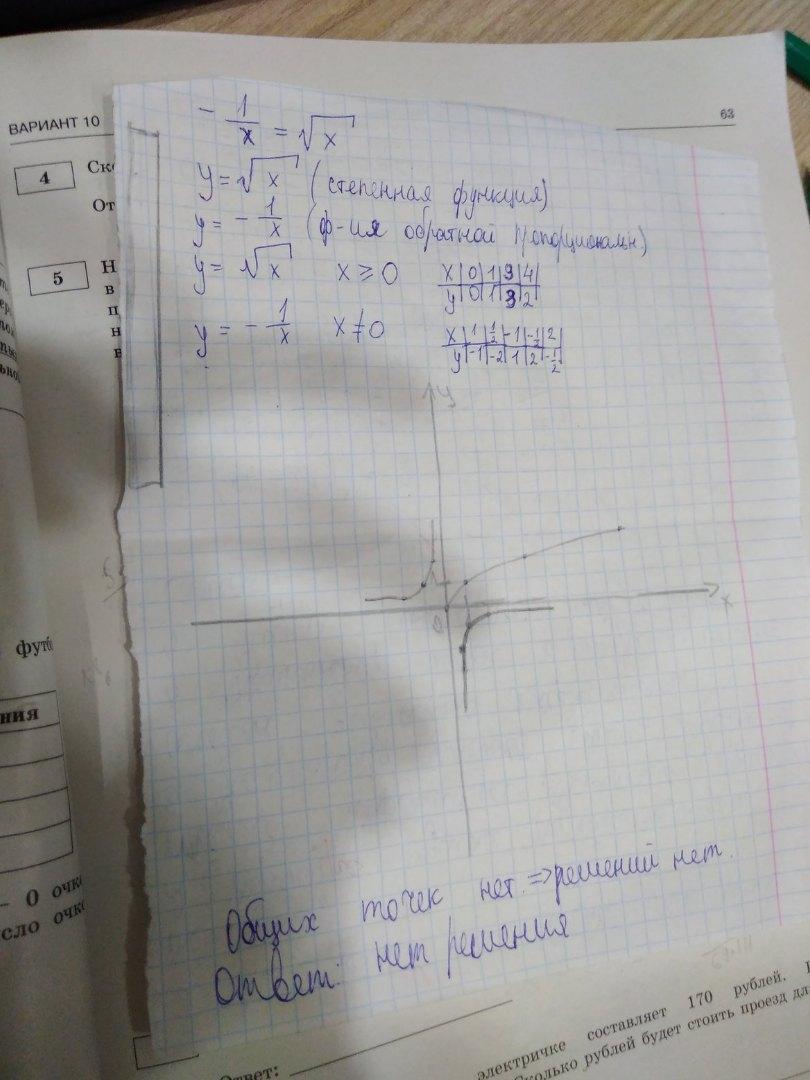 ВАРИАНТ 10
63
4
Ск
От
5
Н
в
п
н
в
- 1/x = √x
y = √x (степенная функция)
y = - 1/x (ф-ия обратной пропорциональн)
y = √x x ≥ 0
x | 0 | 1 | 3 | 4 |
y | 0 | 1 | 3 | 2 |
y = - 1/x x ≠ 0
x | 1 | 1/2 | -1 | -1/2 | 2
y | -1 | -2 | 1 | 2 | -1/2
y
0
x
футб
ния
– 0 очк
сло очк
Общих точек нет => решений нет.
Ответ: нет решения
Ответ:
электричке составляет 170 рублей.
Сколько рублей будет стоить проезд дл